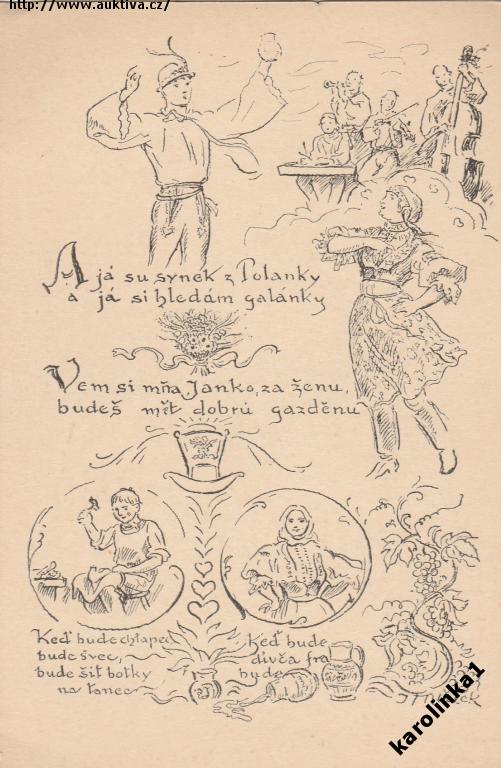 http://www.auktiva.cz/
A já su synek z Polanky
a já si hledám galánky
Vem si mňa, Janko, za ženu,
budeš mět dobrú gazděnu
Keď bude chłapec,
bude švec,
bude šiť botky
na tanec
Keď bude
divča fra
bude
karolinka1